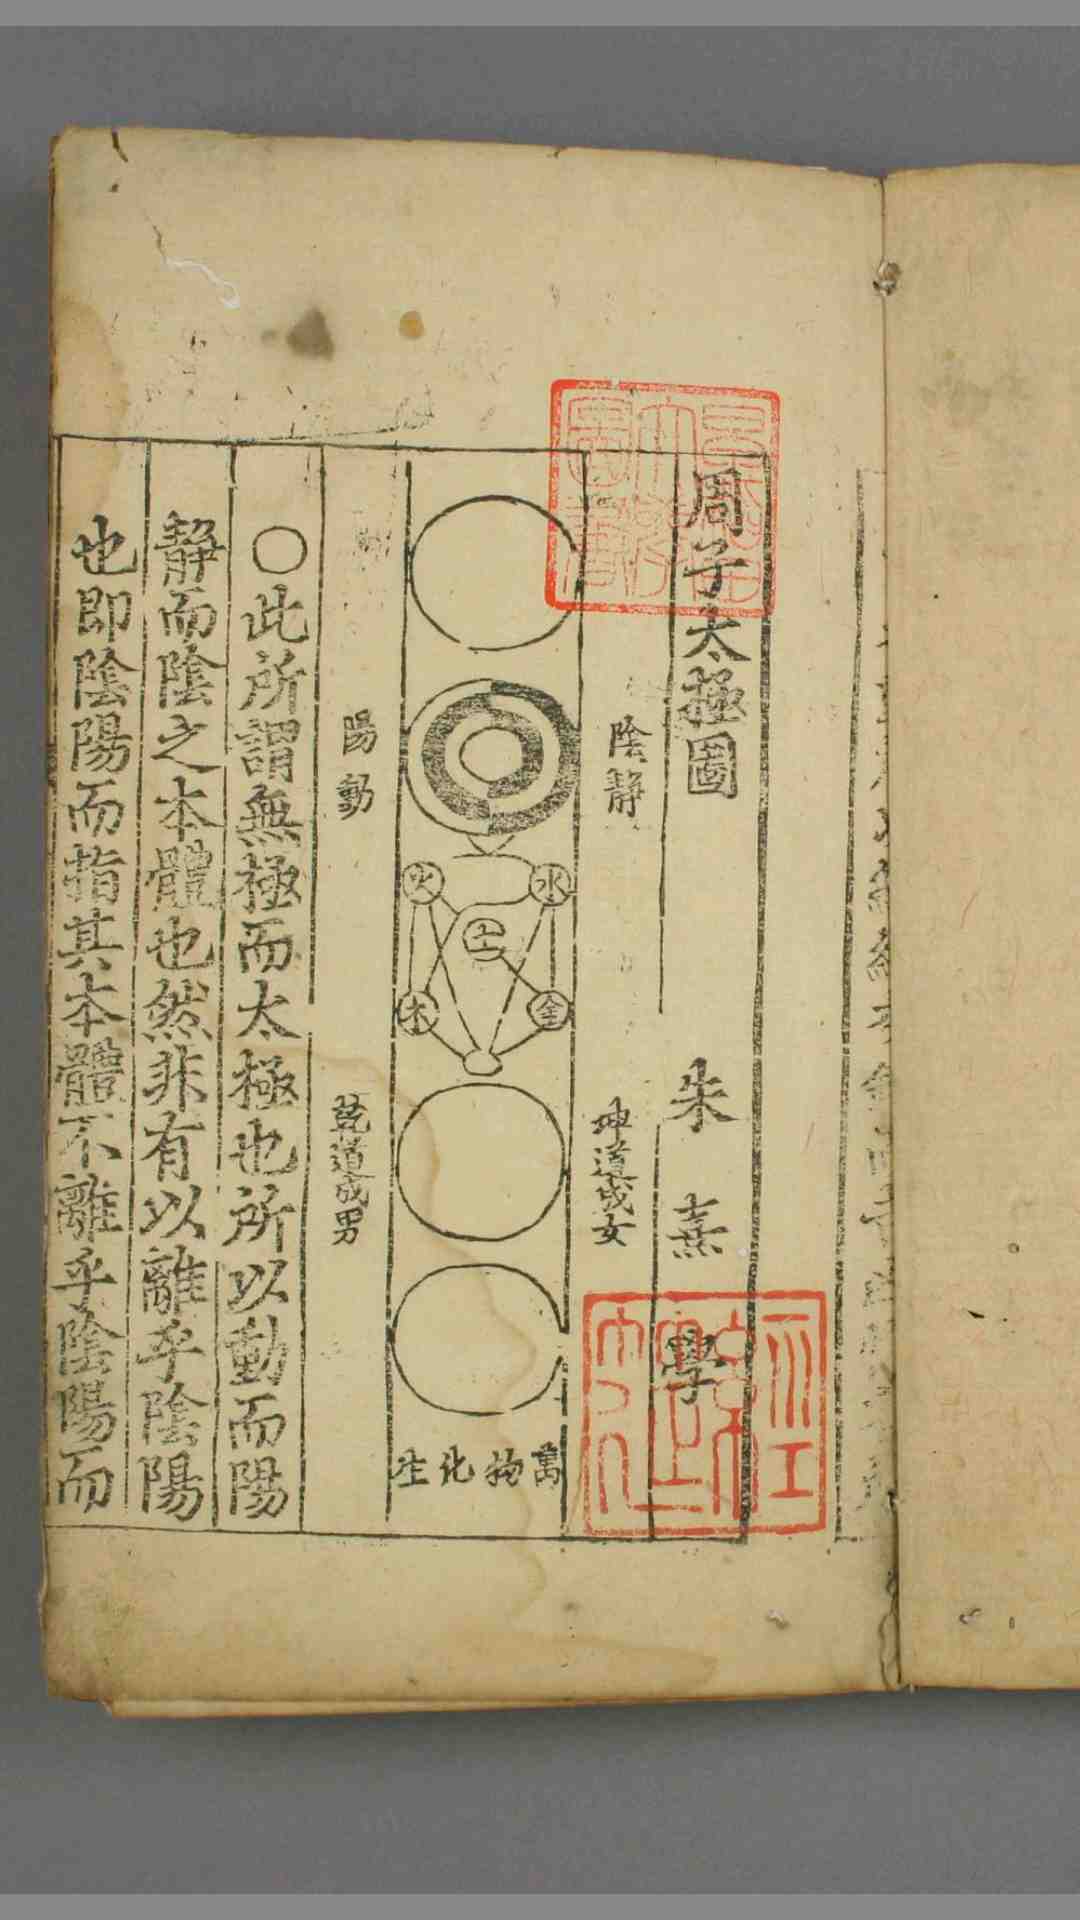 周子太極圖
朱熹學
陰靜
坤道成女
水
火
土
金
木
萬物化生
陽動
乾道成男
〇此所謂無極而太極也所以動而陽
靜而陰之本體也然非有以離乎陰陽
也即陰陽而指其本體不離乎陰陽而